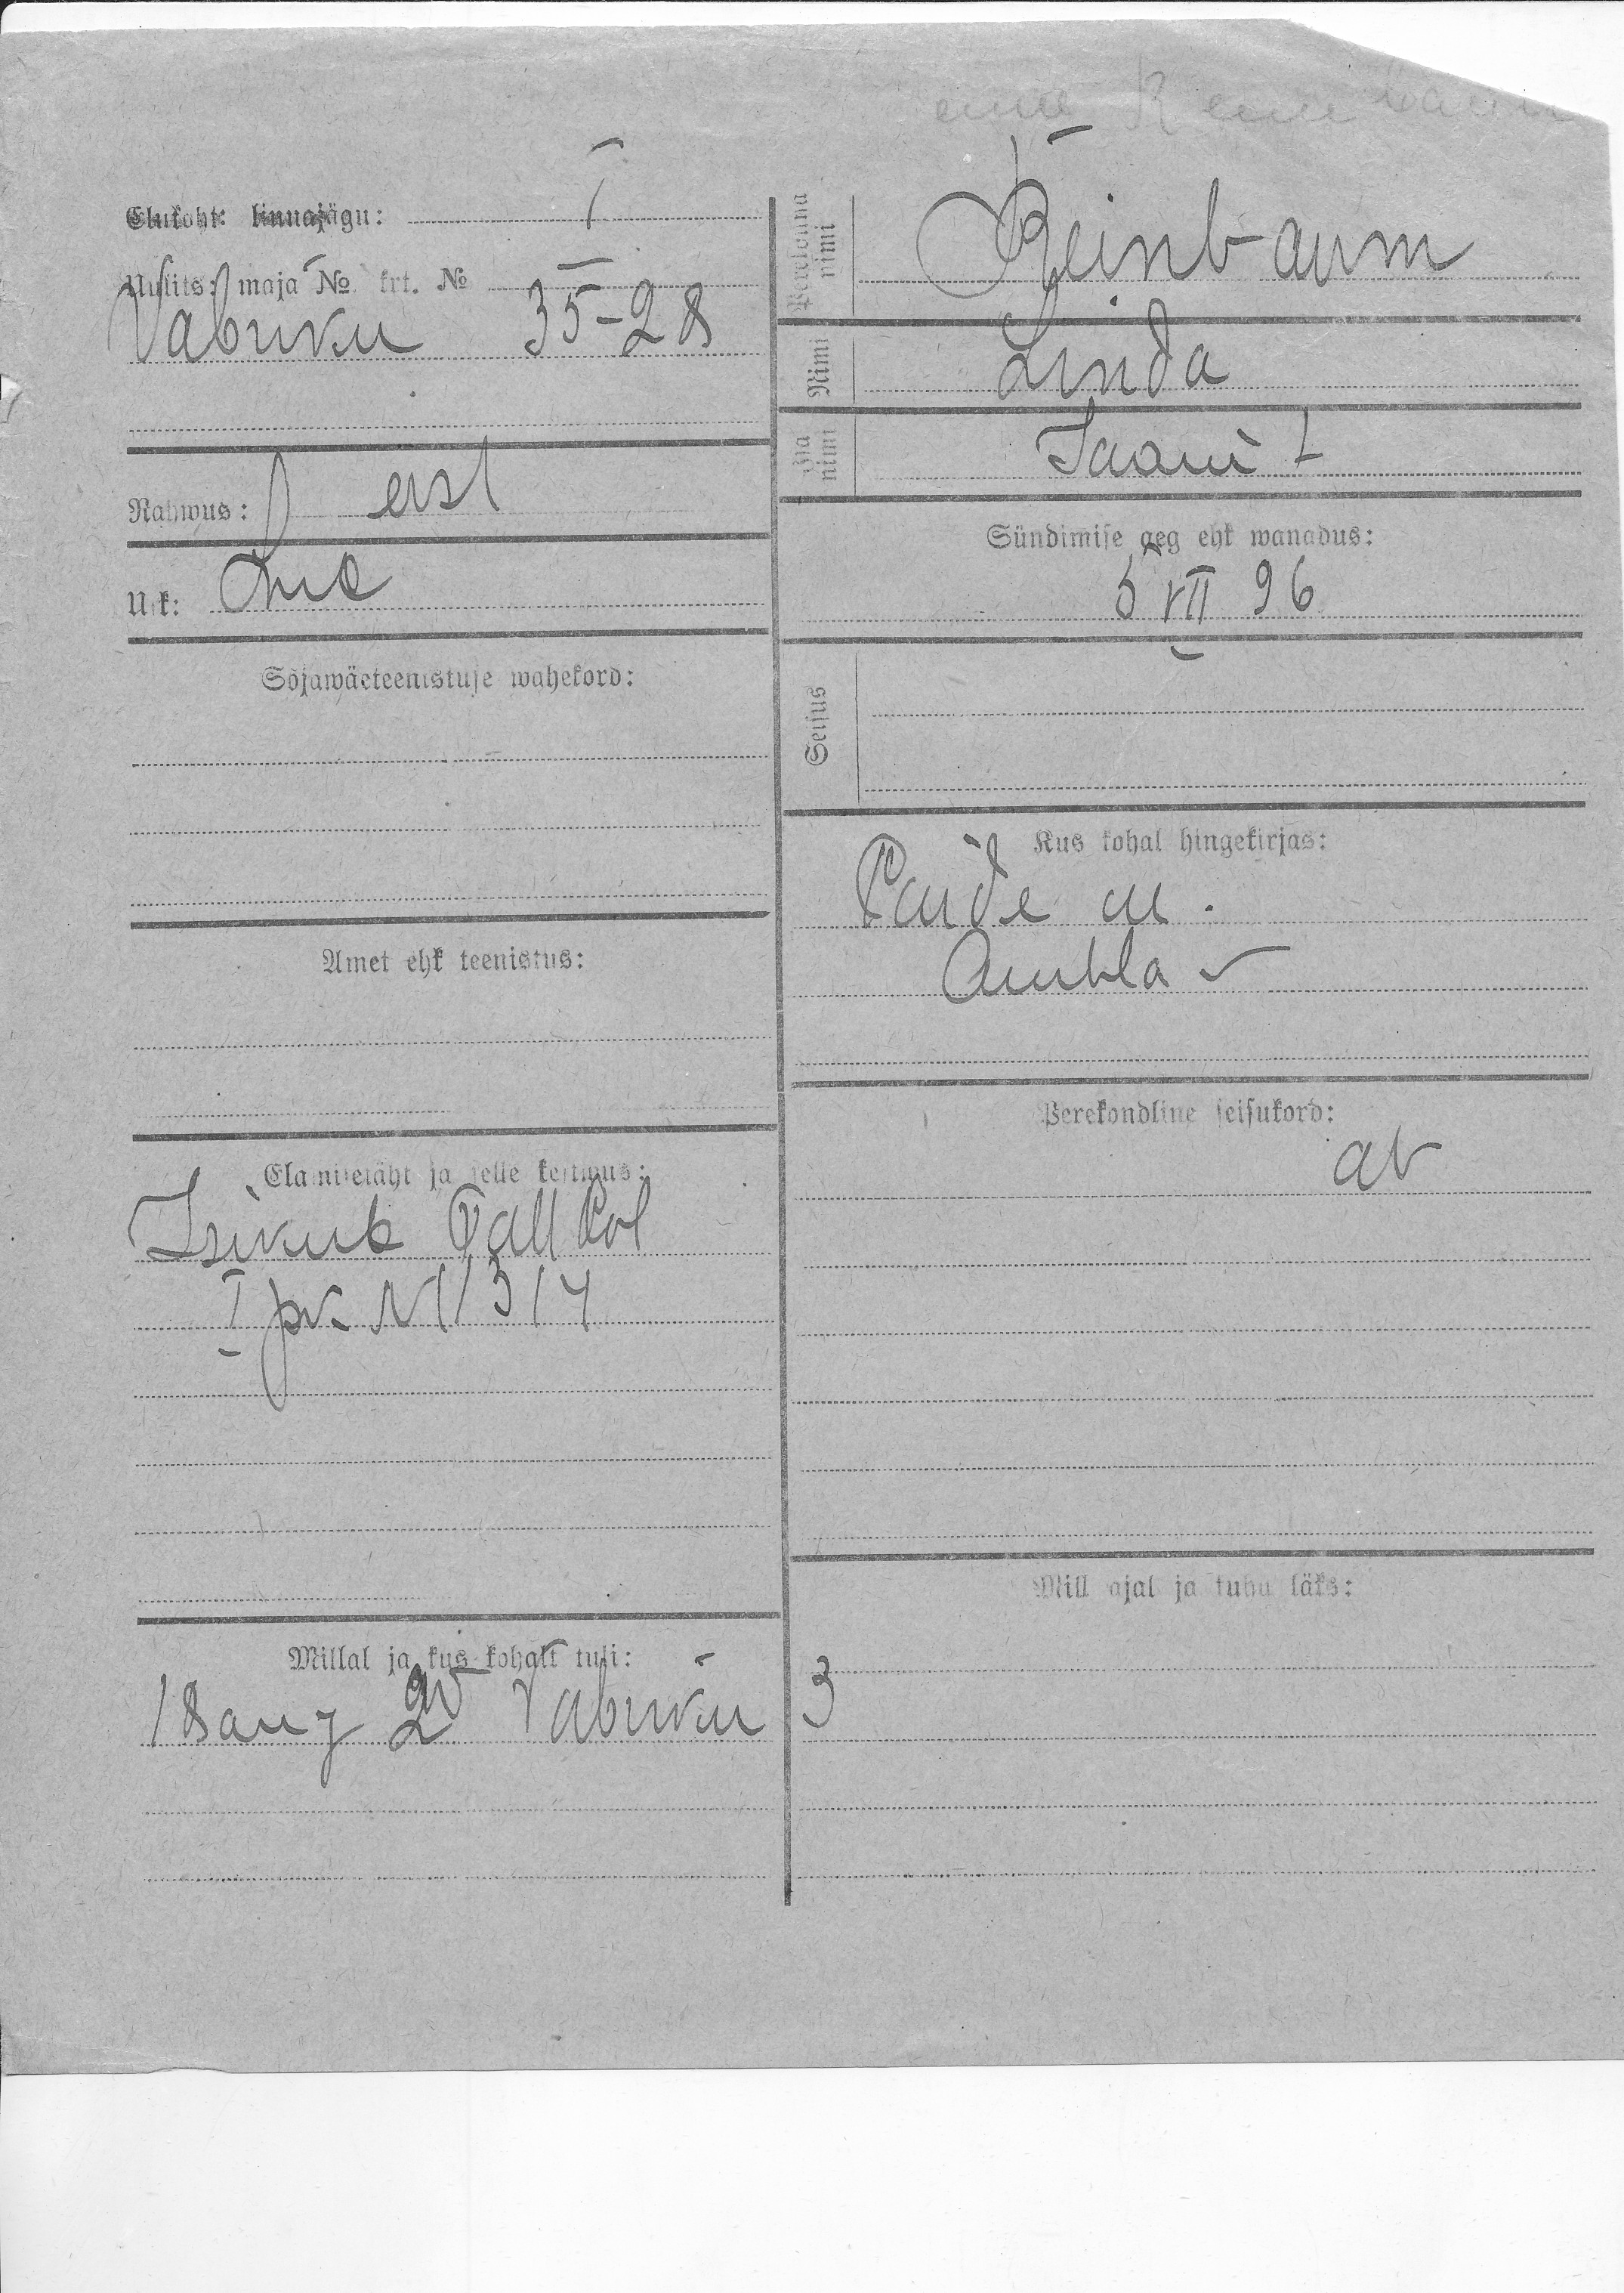 Elukoht: linnajägu: I
Uulits: maja № krt. №
Vabriku 35-28
Rahwus: eest
Usk: Lut
Sõjawäeteenistuse wahekord:
Amet ehk teenistus:
Elamisetäht ja selle kestwus:
Isikut Tall Pol
I jsk N 11314
Millal ja kus kohalt tuli:
18 aug Vabriku 3
Perekonna nimi
Reinbaum
Nimi
Linda
Isa nimi
Jaani t
Sündimise aeg ehk wanadus:
5 VII 96
Seisus
Kus kohal hingekirjas:
Paide m.
Ambla v
Perekondline seisukord:
ab
Mill ajal ja kuhu läks: